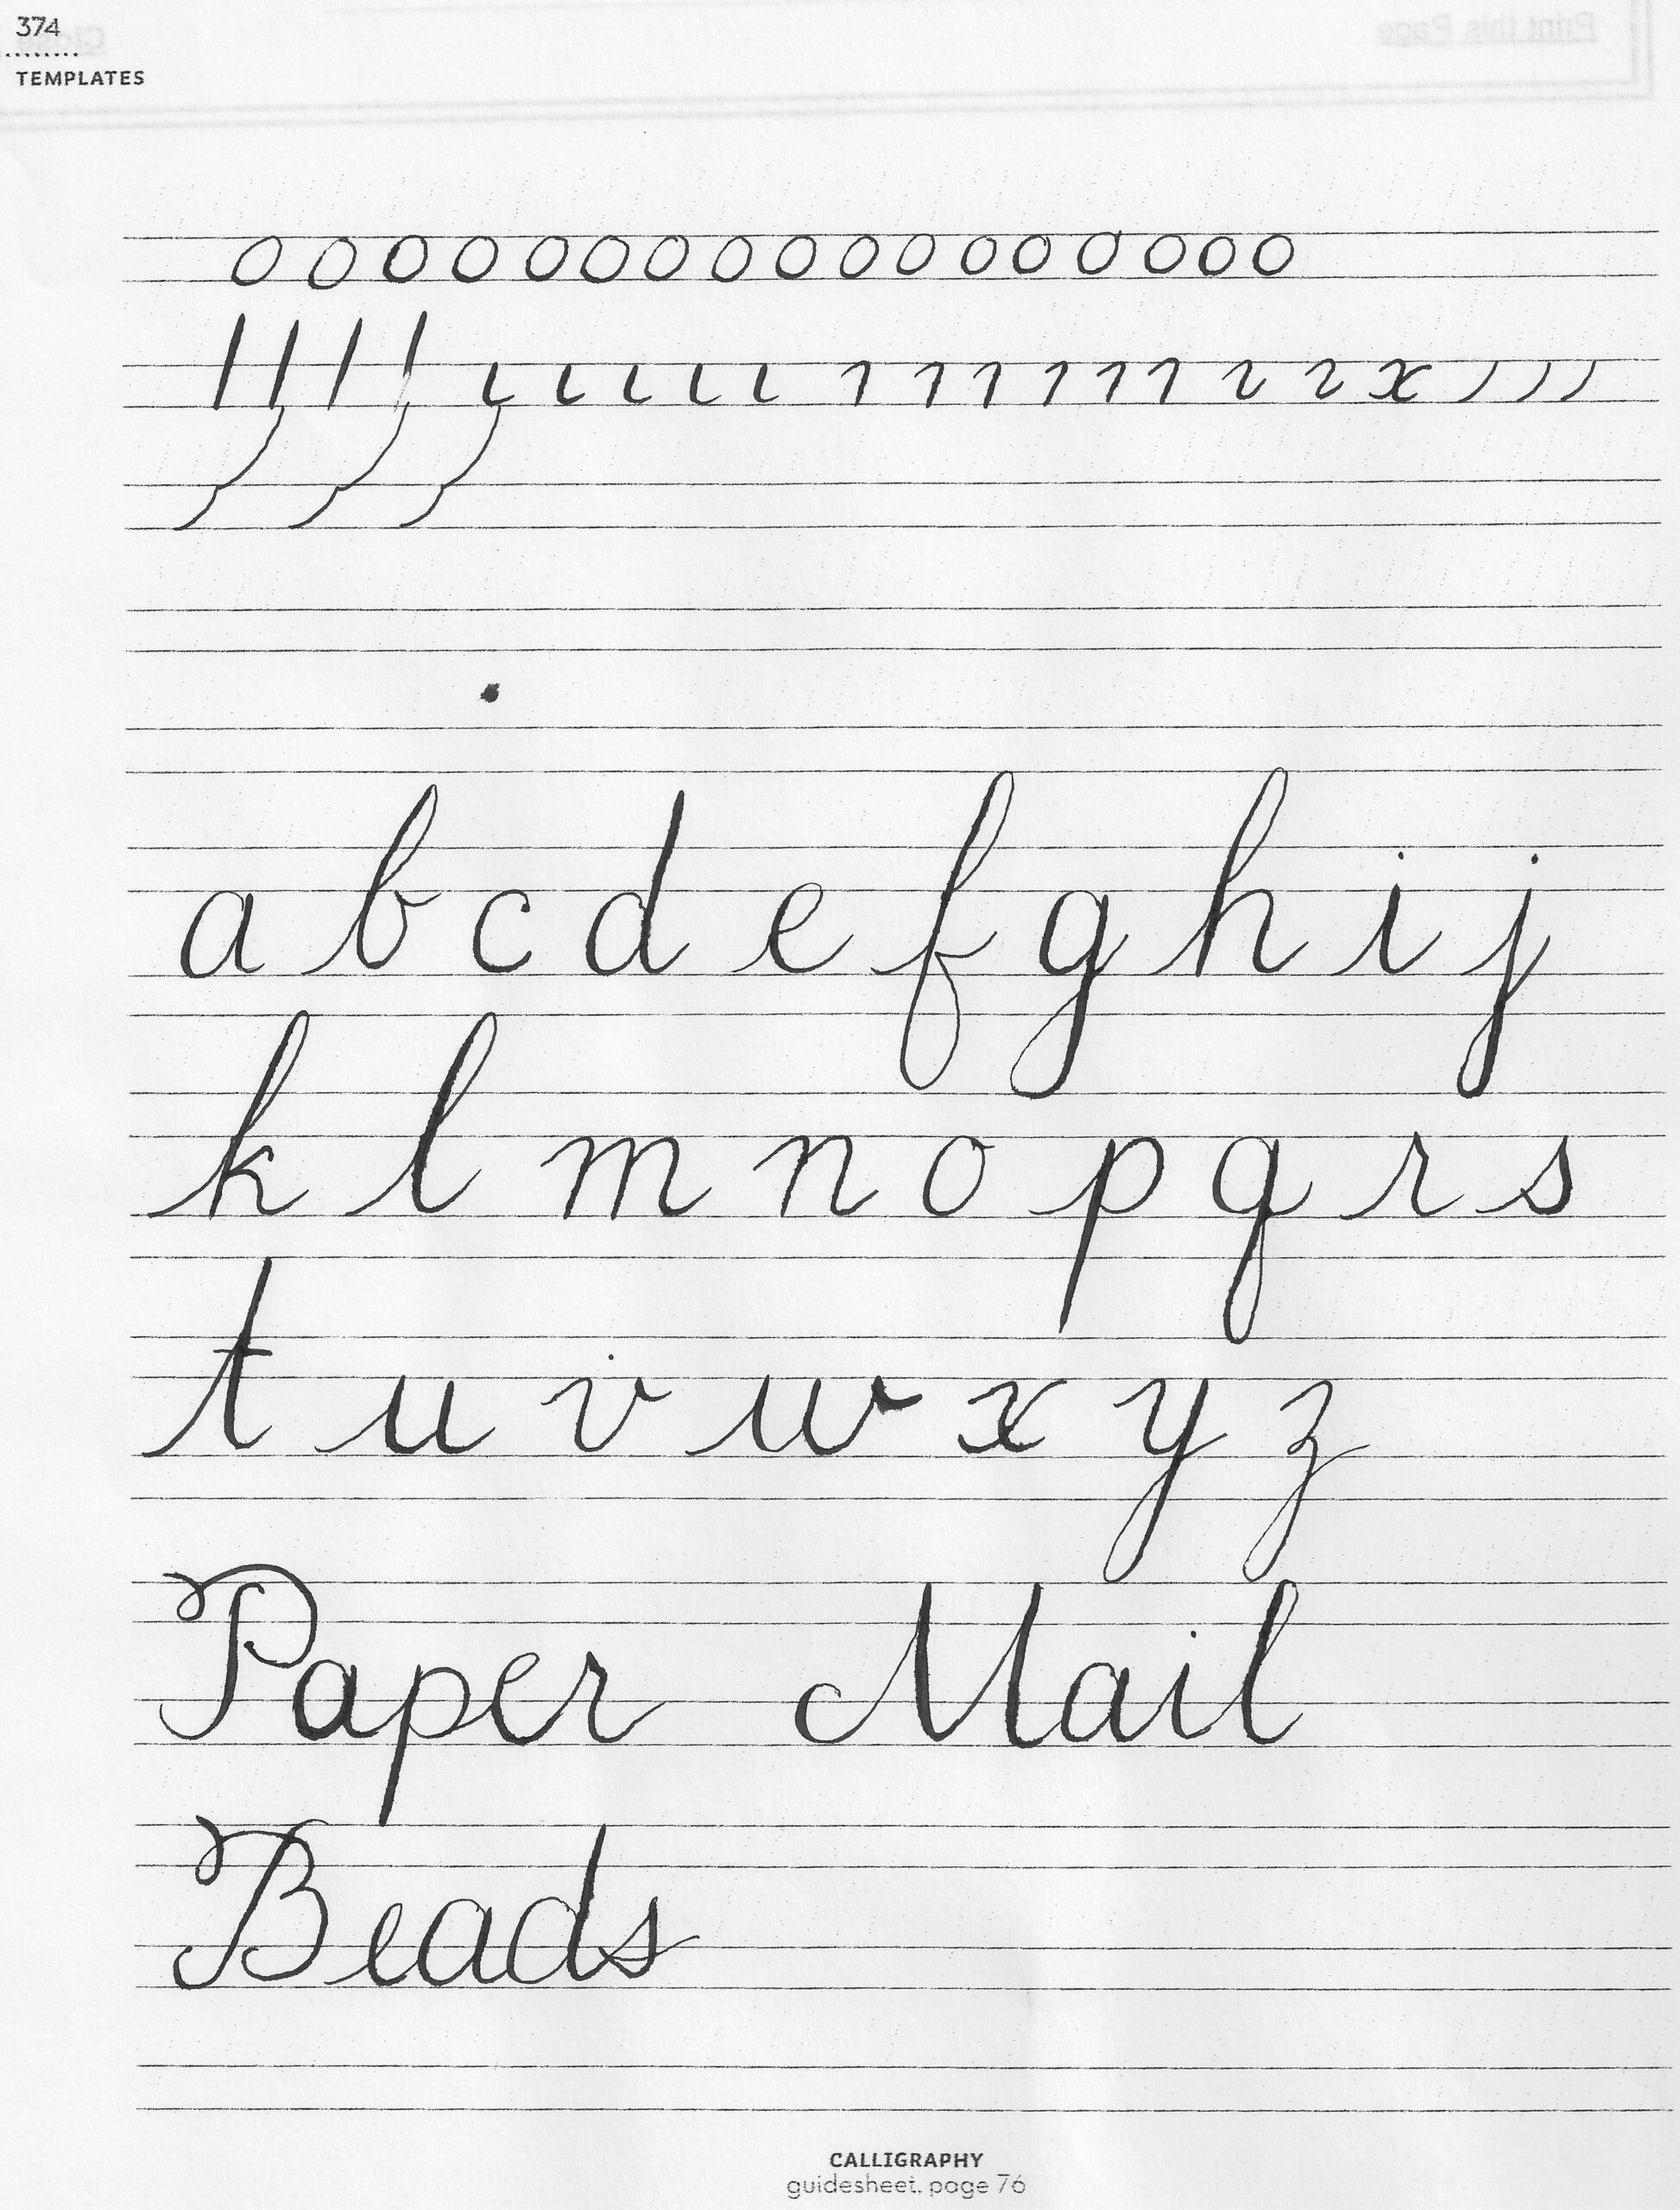 374
TEMPLATES
Print this Page
Close
o o o o o o o o o o o o o o o o o
a b c d e f g h i j
k l m n o p q r s
t u v w x y z
Paper Mail
Beads
CALLIGRAPHY
guidesheet, page 76